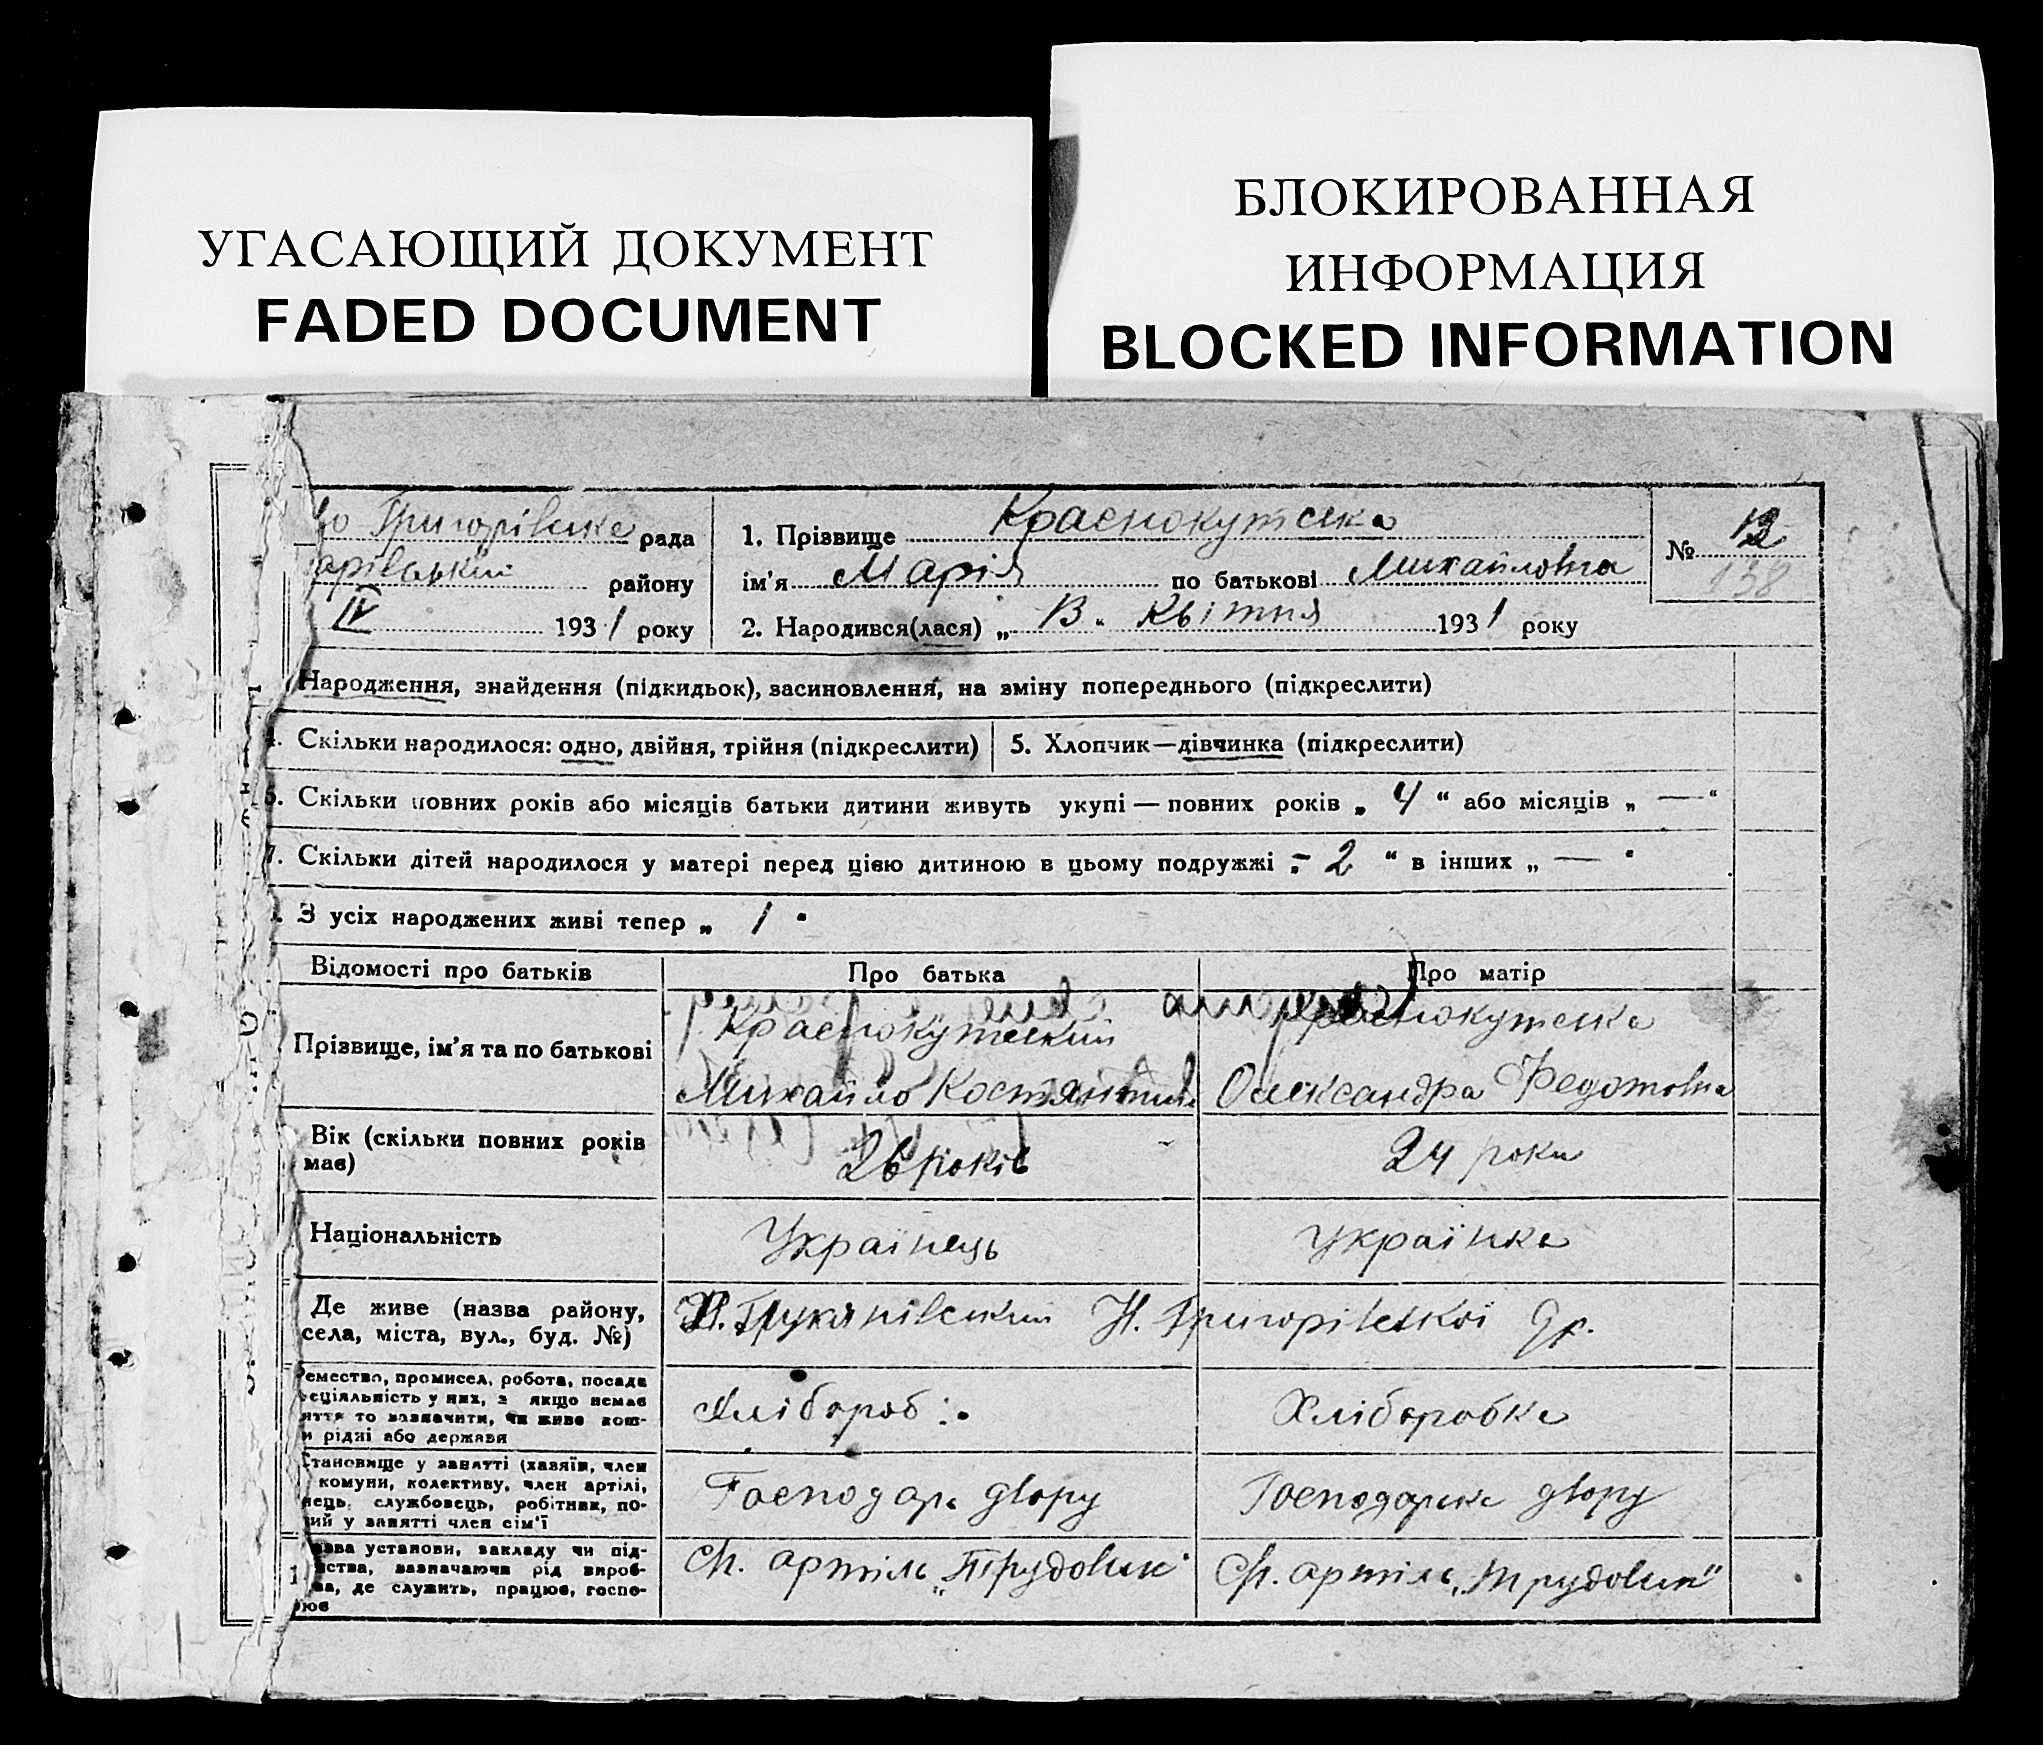 УГАСАЮЩИЙ ДОКУМЕНТ
FADED DOCUMENT
БЛОКИРОВАННАЯ
ИНФОРМАЦИЯ
BLOCKED INFORMATION
во Григорівська рада
арівський району
IV 1931 року
1. Прізвище Краснокутська
ім'я Марія по батькові Михайловна
2. Народився(лася) „13“ Квітня 1931 року
№ 12
138
Народження, знайдення (підкидьок), засиновлення, на зміну попереднього (підкреслити)
4. Скільки народилося: одно, двійня, трійня (підкреслити)
5. Хлопчик—дівчинка (підкреслити)
6. Скільки повних років або місяців батьки дитини живуть укупі — повних років „ 4 “ або місяців „ — “
7. Скільки дітей народилося у матері перед цією дитиною в цьому подружжі „ 2 “ в інших „ — “
З усіх народжених живі тепер „ 1 “
Відомості про батьків Про батька Про матір
Прізвище, ім'я та по батькові
Краснокутський
Михайло Костянтин
Краснокутська
Олександра Федотовна
Вік (скільки повних років
має)
26 років
24 роки
Національність
Українець
українка
Де живе (назва району,
села, міста, вул., буд. №)
Н. Григорівської
Ремество, промисел, робота, посада
еціяльність у них, з якщо немає
яття то зазначити, чи живе кош-
и рідні або держави
Хлібороб
Хліборобка
Становище у занятті (хазяїн, член
комуни, колективу, член артілі,
нець, службовець, робітник, по-
ний у занятті член сім'ї
Господар двору
Господарка двору
азва установи, закладу чи під-
мства, зазначаючи рід вироб-
ва, де служить, працює, госпо-
рює
Сп. артіль „Трудовик“
Сп. артіль „Трудовик“